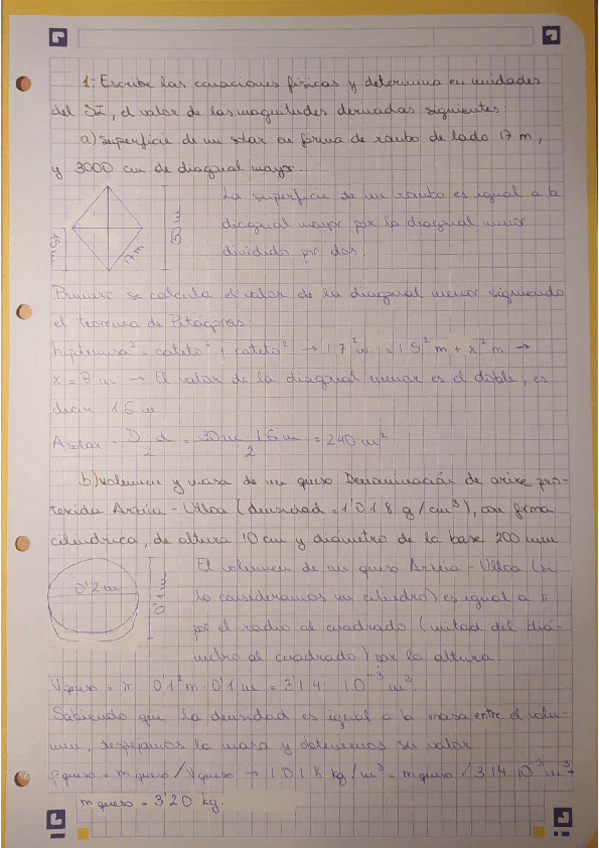 1- Escribe las ecuaciones físicas y determina en unidades
del SI, el valor de las magnitudes derivadas siguientes:
a) superficie de un solar en forma de rombo de lado 17 m,
y 3000 cm de diagonal mayor.
La superficie de un rombo es igual a la
diagonal mayor por la diagonal menor
dividido por dos.
15 m
17 m
30 m
Primero se calcula el valor de la diagonal menor siguiendo
el teorema de Pitágoras:
hipotenusa² = cateto² + cateto² → 17² m = 15² m + x² m →
x = 8 m → El valor de la diagonal menor es el doble, es
decir 16 m
A solar = D · d / 2 = 30 m · 16 m / 2 = 240 m²
b) volumen y masa de un queso Denominación de orixe pro-
texida Arzúa - Ulloa (densidad = 1'018 g/cm³), con forma
cilíndrica, de altura 10 cm y diámetro de la base 200 mm
El volumen de un queso Arzúa - Ulloa (si
lo consideramos un cilindro) es igual a π
por el radio al cuadrado (mitad del diá-
metro al cuadrado) por la altura.
0'2 m
0'1 m
V queso = π · 0'1² m · 0'1 m = 3'14 · 10⁻³ m³.
Sabiendo que la densidad es igual a la masa entre el volu-
men, despejamos la masa y obtenemos su valor
ρ queso = m queso / V queso → 1018 kg/m³ = m queso / 3'14·10⁻³ m³ →
m queso = 3'20 kg.